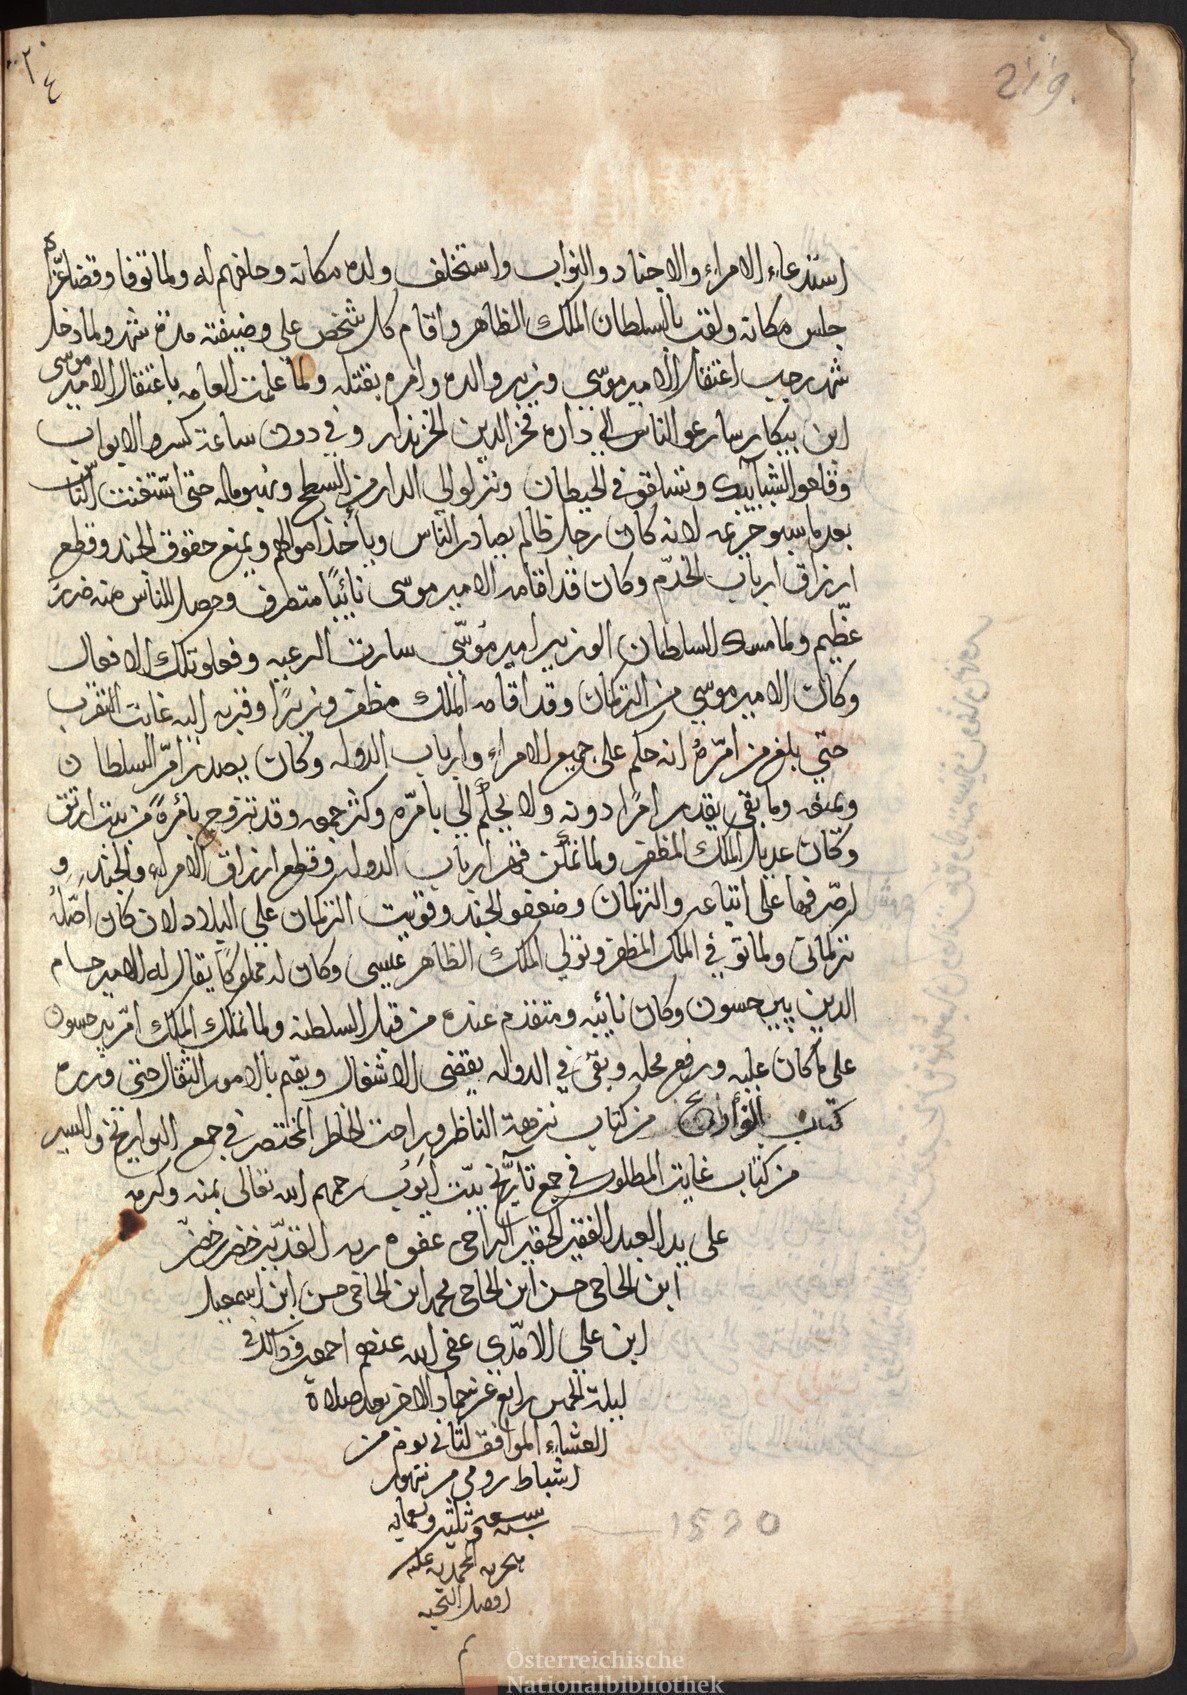 219
استدعاء الامراء والاجناد والنواب واستخلف ولده مكانه وحلفهم له ولما توفا وقضا عزاه
جلس مكانه ولقب بالسلطان الملك الظاهر واقام كل شخص على وضيفته مدة شهر ولما دخل
شهر رجب اعتقل الامير موسى وزير والده وامره بقتله ولما علمت العامه باعتقال الامير موسى
ابن بيكار سارعو الناس الى داره فخر الدين الخزندار وفي دون ساعة كسرو الابواب
وقلعو الشبابيك وتسلقو في الحيطان ونزلو الى الدار من السطح ونهبو ماله حتى استغنت الناس
بعد ما سبو حريمه لانه كان رجل ظالم يصادر الناس ويأخذ اموالهم ويمنع حقوق الجند وقطع
ارزاق ارباب الخدم وكان قد اقامه الامير موسى نائبًا وحصل للناس منه ضررً
عظيم ولما مسك السلطان الوزير امير موسى سارت الرعيه وفعلو تلك الافعال
وكان الامير موسى من التركمان وقد اقامه الملك مظفر وزيرًا وقربه اليه غايت التقرب
حتى بلغ من امره انه حكم على جميع الامراء وارباب الدوله وكان يصدر امر السلطان
ويمنعه وما بقى يقدر امرًا دونه ولا يحكم الى بامره وكثر جمعه وقد تزوج بأمرةً من بيت ارتق
وكان عديل الملك المظفر ولما تمكن قهر ارباب الدوله وقطع ارزاق الامراء والجند و
صرفها على اتباعه والتركمان وضعفو الجند وقويت التركمان على البلاد لان كان اصله
تركمانى ولما توفي الملك المظفر وتولى الملك الظاهر عيسى وكان له مملوكًا يقال له الامير حسام
الدين پير حسون وكان نائبه ومتقدم عنده من قبل السلطنه ولما تملك الملك امر پير حسون
على ما كان عليه ورفع محله وبقى في الدوله يقضى الاشغال ويقيم بالامور الثقال حتى
كتاب من كتاب نزهة الناظر وراحت الخاطر المختصر في جمع التواريخ والسير
من كتاب غايت المطلوب في جمع تأريخ بيت ايوب رحمهم الله تعالى بمنه وكرمه
على يد العبد الفقير الحقير الراجى عفوه ربه القدير خضر بن خضر
ابن الحاجى حسن ابن الحاجى محمد ابن الحاجى حسن ابن اسمعيل
ابن علي الامدى عفى الله عنهم اجمعين وذالك في
ليلة الخميس رابع عشر جماد الاخر بعد صلاة
العشاء الموافق لثانى يوم من
اشباط رومى من شهور
سنة سبعه وثلثين وتسعمايه
هجريه المحمديه عليه
افضل التحيه
1530
Österreichische
Nationalbibliothek